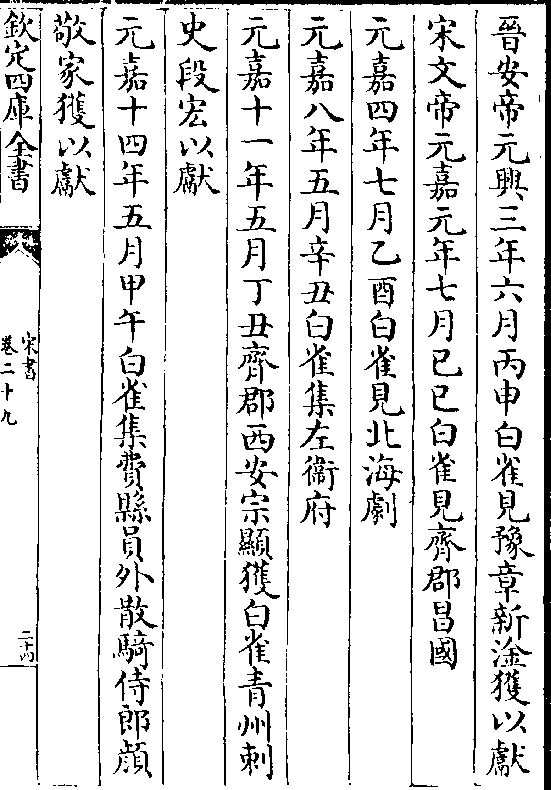 晉安帝元興三年六月丙申白雀見豫章新淦獲以獻
宋文帝元嘉元年七月己巳白雀見齊郡昌國
元嘉四年七月乙酉白雀見北海劇
元嘉八年五月辛丑白雀集左衞府
元嘉十一年五月丁丑齊郡西安宗顯獲白雀青州刺
史段宏以獻
元嘉十四年五月甲午白雀集費縣員外散騎侍郎顔
敬家獲以獻
欽定四庫全書
宋書
卷二十九
二十四